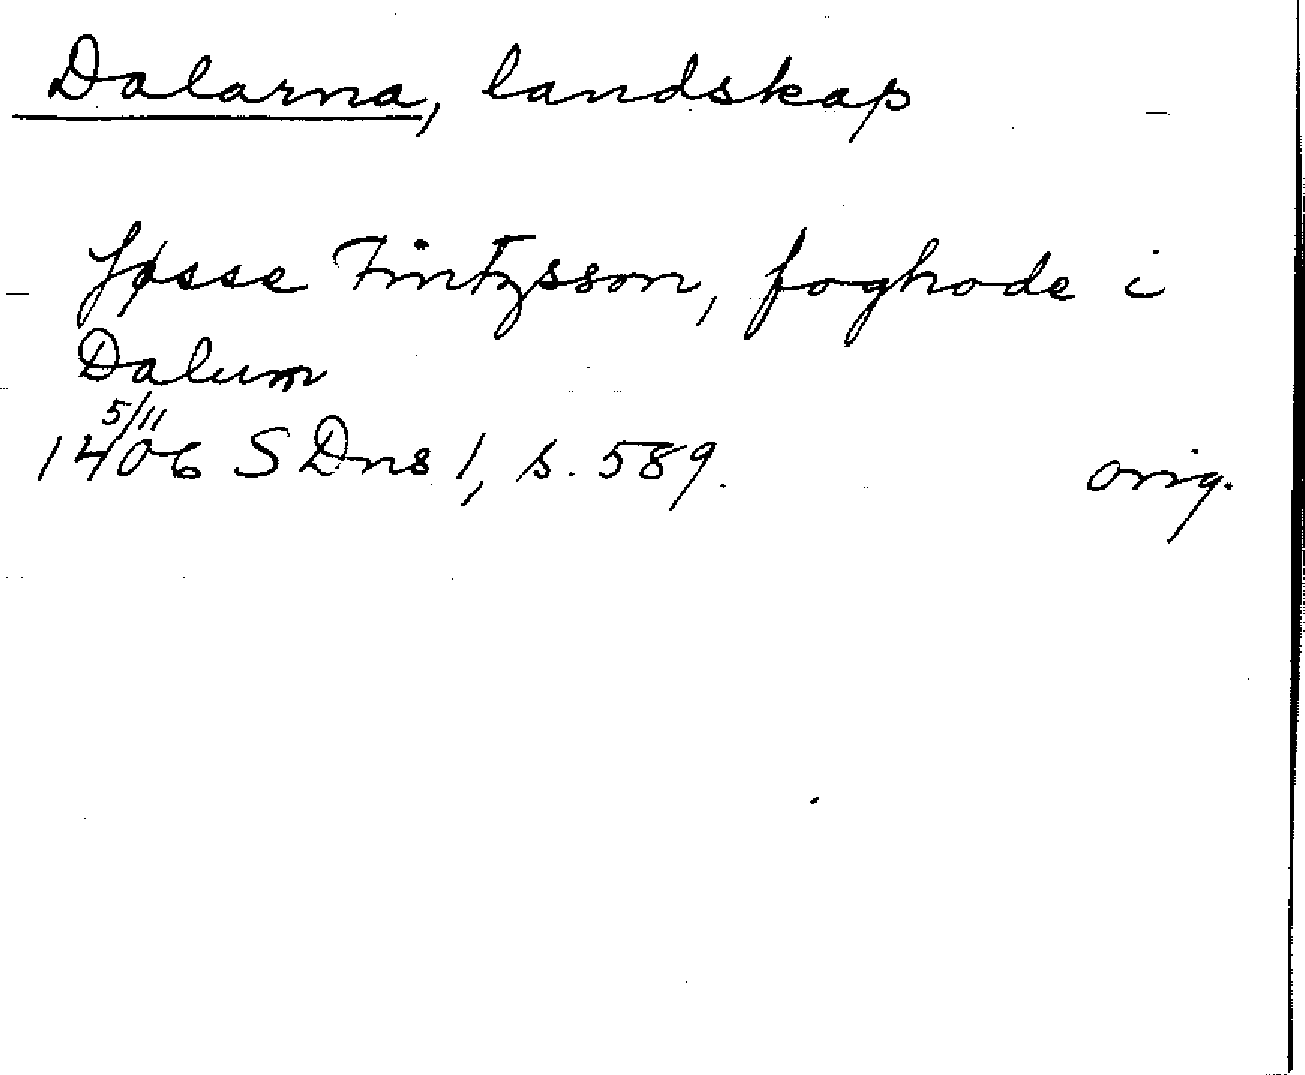 Dalarna, landskap
Jøsse Fintzsson, foghode i
Dalum
5/11
1406 SDns 1, s. 589. orig.